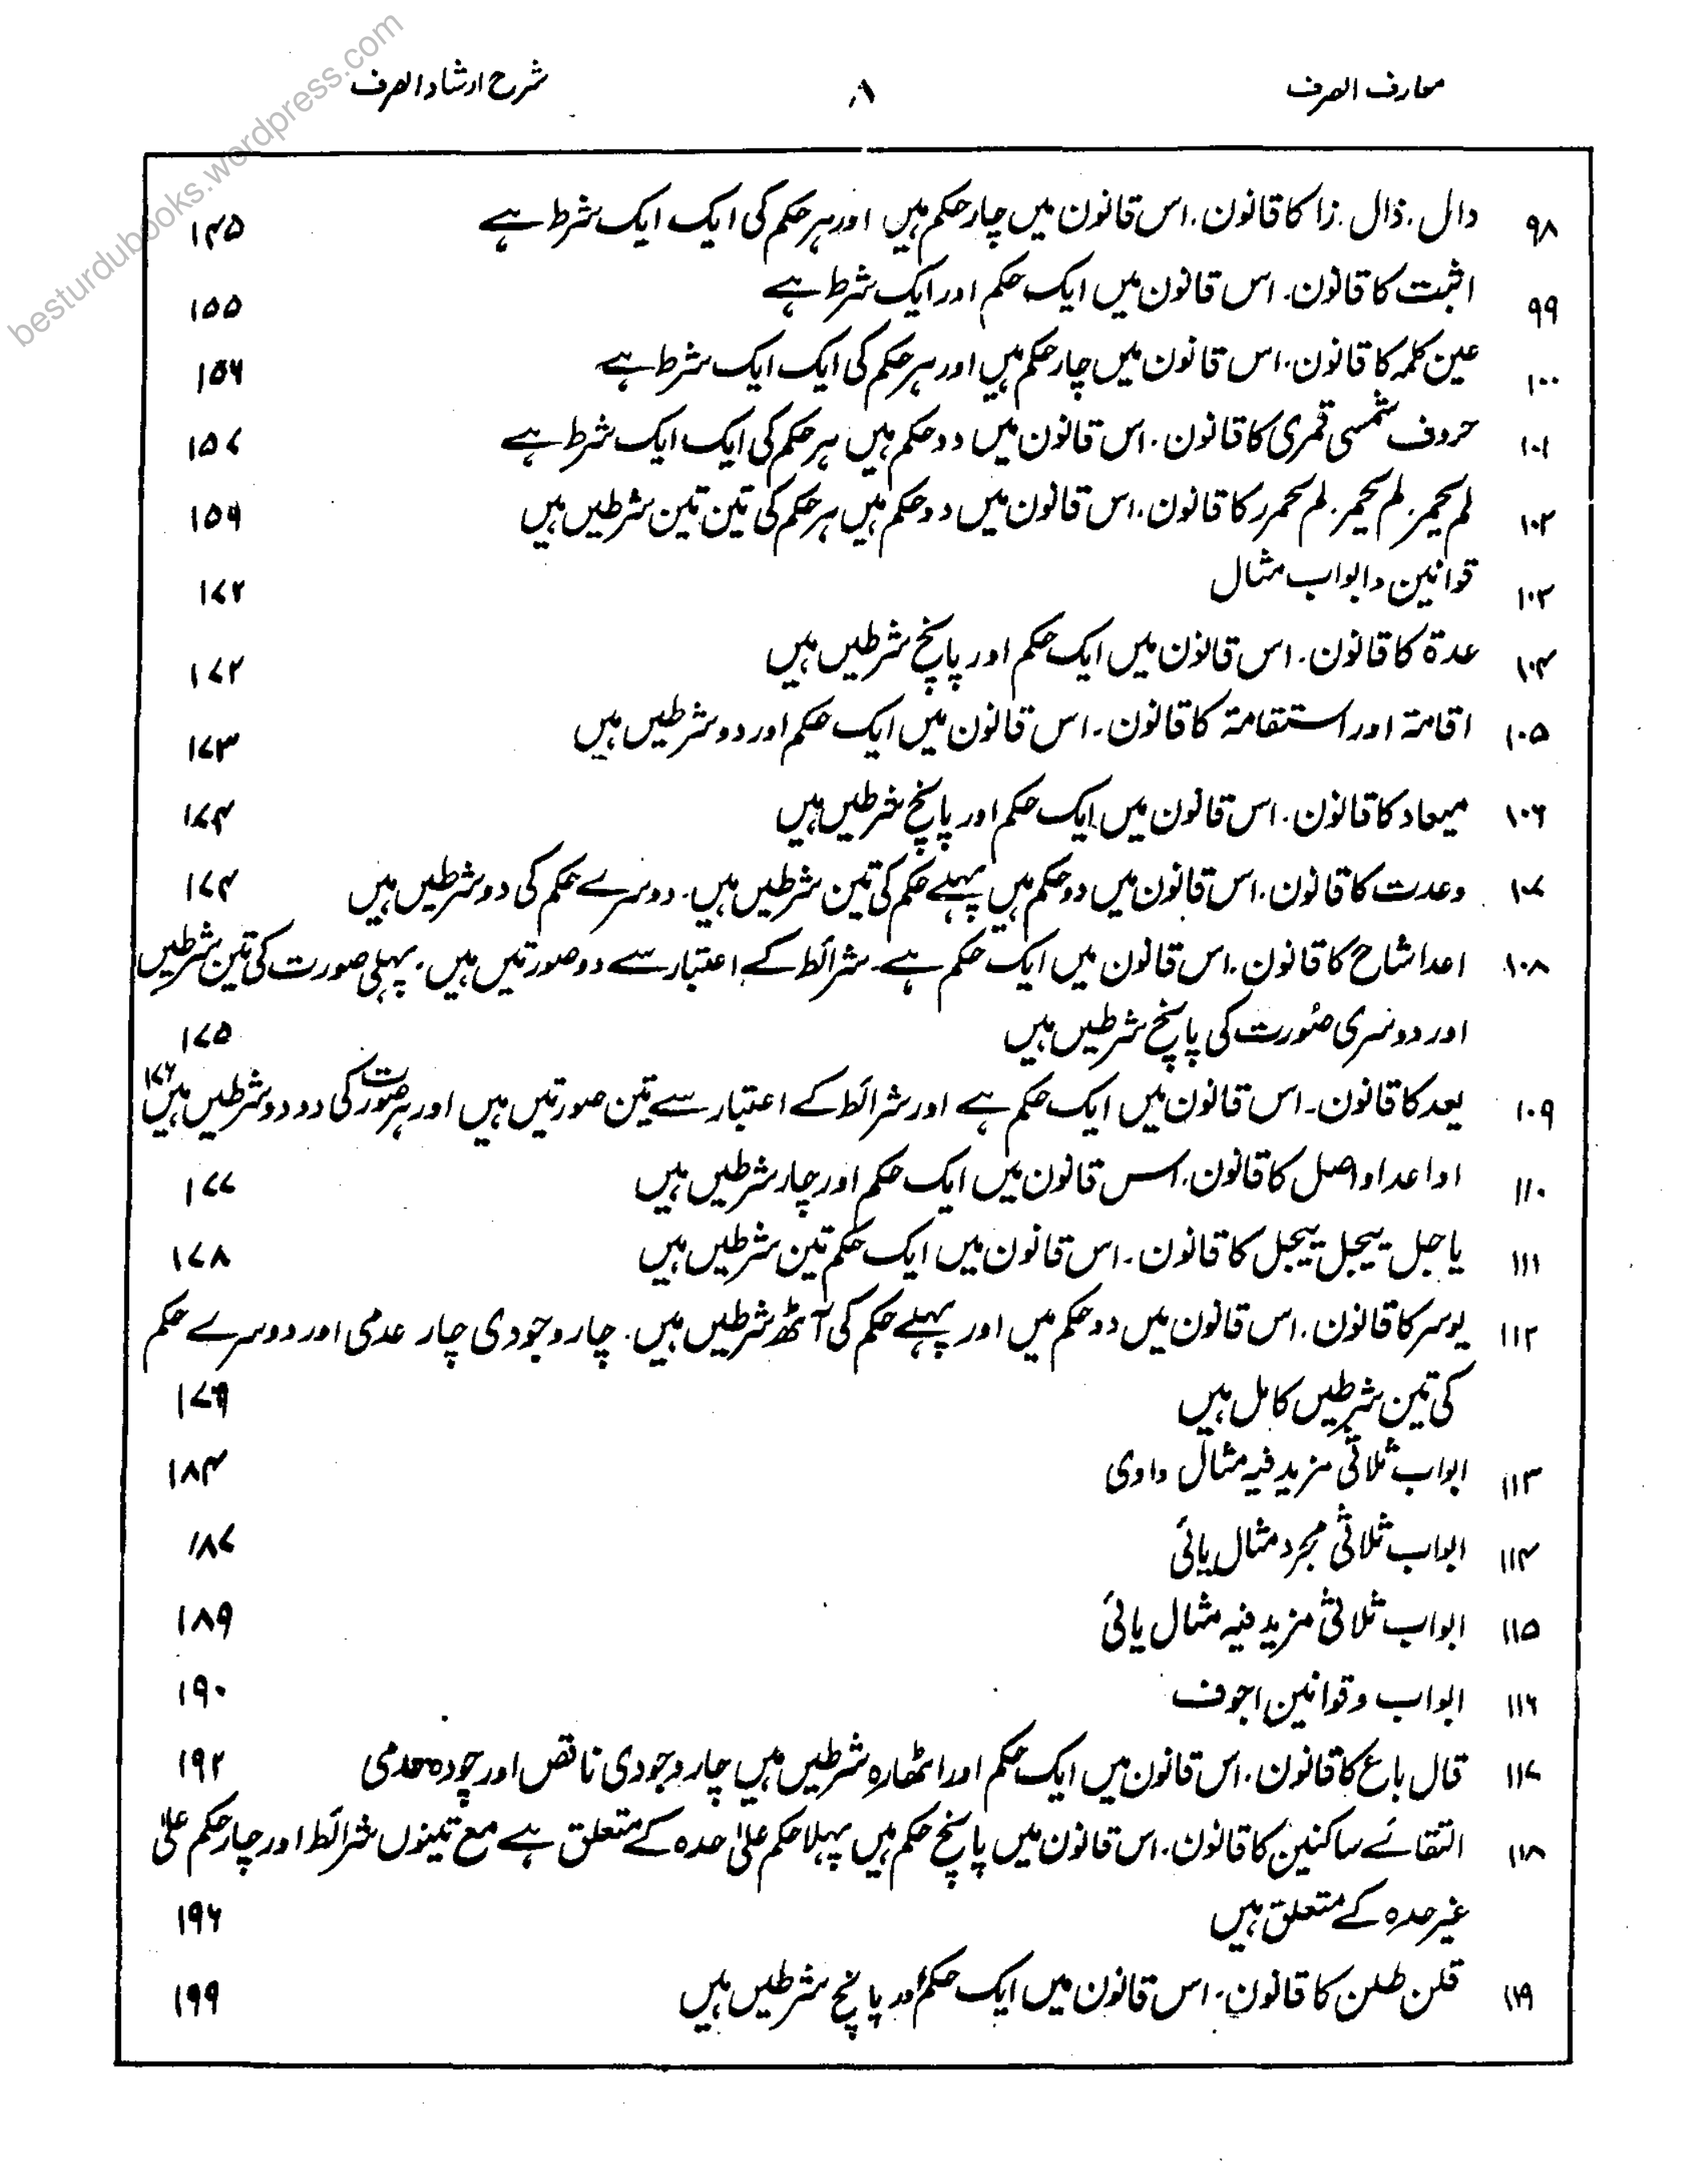 معارف الصرف ۸ شرح ارشاد الصرف
۹۸ دال. ذال. زا کا قانون. اس قانون میں چار حکم ہیں اور ہر حکم کی ایک ایک شرط ہے ۱۴۵
۹۹ اثبت کا قانون. اس قانون میں ایک حکم اور ایک شرط ہے ۱۵۵
۱۰۰ عین کلمہ کا قانون. اس قانون میں چار حکم ہیں اور ہر حکم کی ایک ایک شرط ہے ۱۵۶
۱۰۱ حروف شمسی قمری کا قانون. اس قانون میں دو حکم ہیں ہر حکم کی ایک ایک شرط ہے ۱۵۷
۱۰۲ لم یحمر. لم یحمر. لم یحمرر کا قانون. اس قانون میں دو حکم ہیں ہر حکم کی تین تین شرطیں ہیں ۱۵۹
۱۰۳ قوانین و ابواب مثال ۱۷۲
۱۰۴ عدۃ کا قانون. اس قانون میں ایک حکم اور پانچ شرطیں ہیں ۱۷۲
۱۰۵ اقامتہ اور استقامتہ کا قانون۔ اس قانون میں ایک حکم اور دو شرطیں ہیں ۱۷۳
۱۰۶ میعاد کا قانون. اس قانون میں ایک حکم اور پانچ شرطیں ہیں ۱۷۴
۱۰۷ وعدت کا قانون. اس قانون میں دو حکم ہیں پہلے حکم کی تین شرطیں ہیں. دوسرے حکم کی دو شرطیں ہیں ۱۷۴
۱۰۸ اعد اشاح کا قانون. اس قانون میں ایک حکم ہے۔ شرائط کے اعتبار سے دو صورتیں ہیں. پہلی صورت کی تین شرطیں
اور دوسری صورت کی پانچ شرطیں ہیں ۱۷۵
۱۰۹ یعد کا قانون۔ اس قانون میں ایک حکم ہے اور شرائط کے اعتبار سے تین صورتیں ہیں اور ہر صورت کی دو دو شرطیں ہیں ۱۷۶
۱۱۰ اواعد اواصل کا قانون. اس قانون میں ایک حکم اور چار شرطیں ہیں ۱۷۷
۱۱۱ یاجل ییجل ییجل کا قانون۔ اس قانون میں ایک حکم تین شرطیں ہیں ۱۷۸
۱۱۲ یوسر کا قانون. اس قانون میں دو حکم میں اور پہلے حکم کی آٹھ شرطیں ہیں. چار وجودی چار عدمی اور دوسرے حکم
کی تین شرطیں کامل ہیں ۱۷۹
۱۱۳ ابواب ثلاثی مزید فیہ مثال واوی ۱۸۴
۱۱۴ ابواب ثلاثی مجرد مثال یائی ۱۸۷
۱۱۵ ابواب ثلاثی مزید فیہ مثال یائی ۱۸۹
۱۱۶ ابواب و قوانین اجوف ۱۹۰
۱۱۷ قال باع کا قانون. اس قانون میں ایک حکم اور اٹھارہ شرطیں ہیں چار وجودی ناقص اور چودہ عدمی ۱۹۲
۱۱۸ التقائے ساکنین کا قانون. اس قانون میں پانچ حکم ہیں پہلا حکم علیٰ حدہ کے متعلق ہے مع تینوں شرائط اور چار حکم علیٰ
غیر حدہ کے متعلق ہیں ۱۹۶
۱۱۹ قلن طلن کا قانون. اس قانون میں ایک حکم اور پانچ شرطیں ہیں ۱۹۹
besturdubooks.wordpress.com